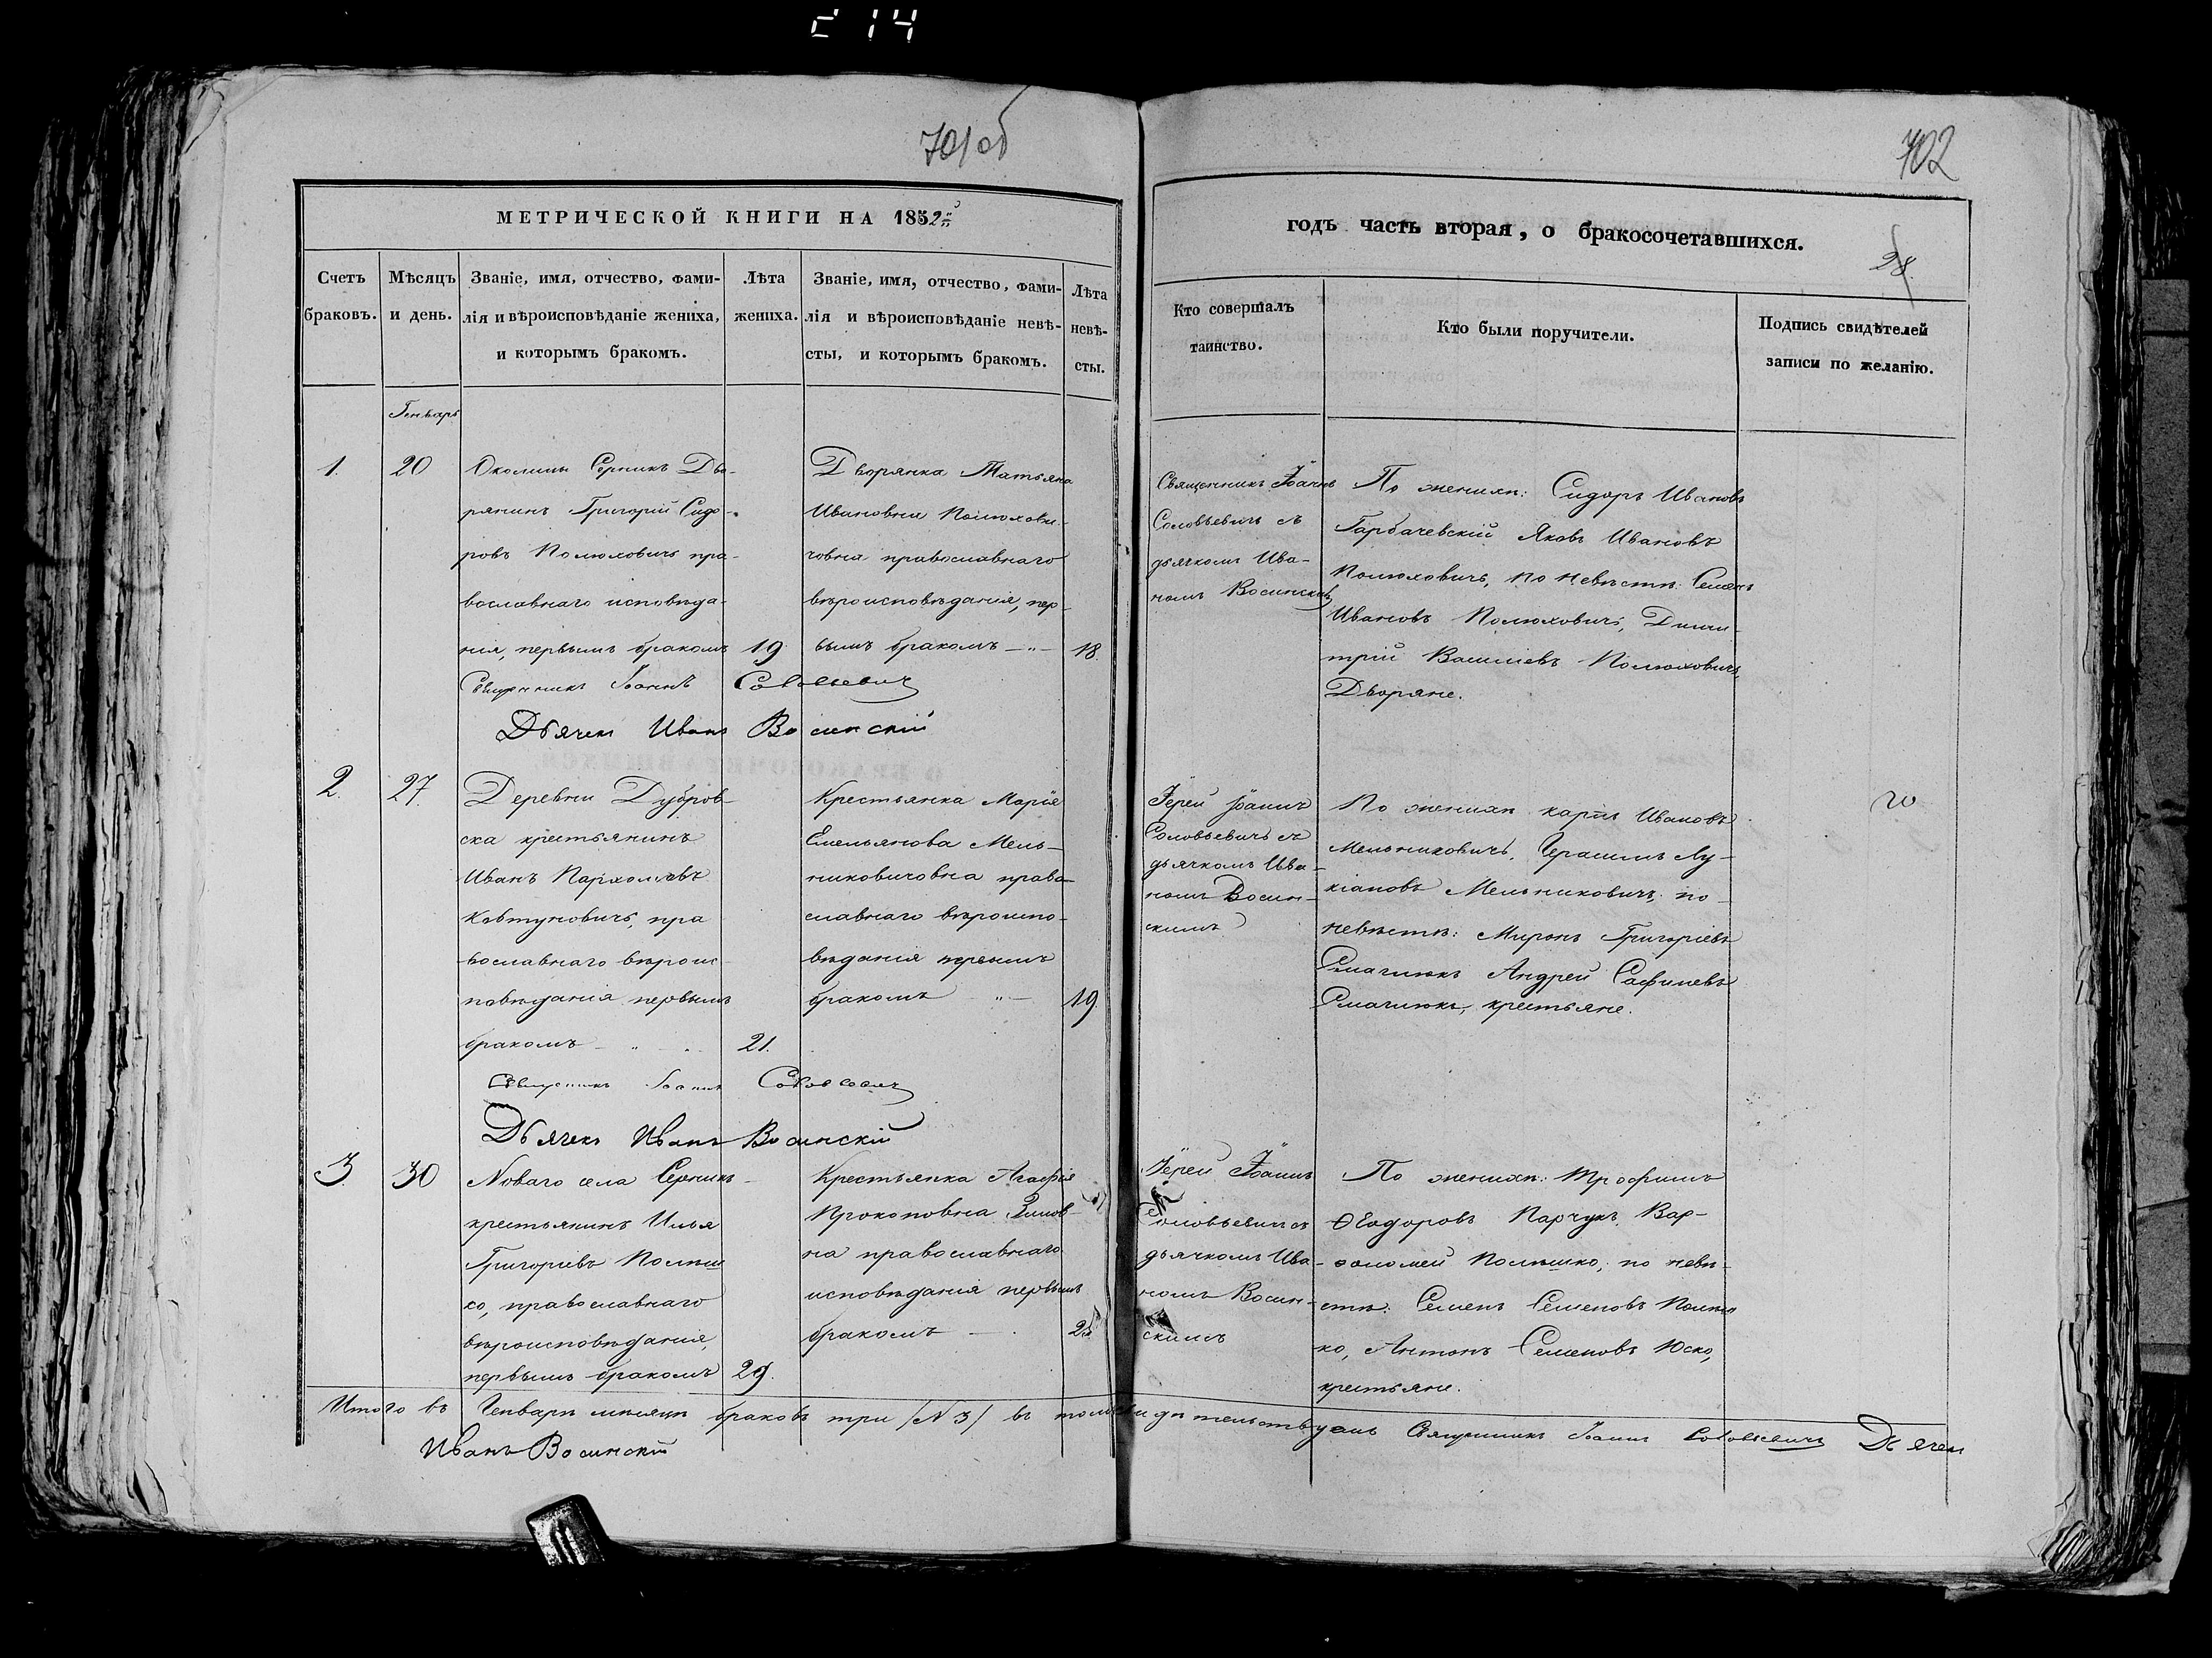 с 14
701 об
702
МЕТРИЧЕСКОЙ КНИГИ НА 1852й
годъ часть вторая, о бракосочетавшихся.
28
Счетъ браковъ.
Мѣсяцъ и день.
Званіе, имя, отчество, фами-
лія и вѣроисповѣданіе жениха,
и которымъ бракомъ.
Лѣта
жениха.
Званіе, имя, отчество, фами-
лія и вѣроисповѣданіе невѣ-
сты, и которымъ бракомъ.
Лѣта
невѣ-
сты.
Кто совершалъ
таинство.
Кто были поручители.
Подпись свидѣтелей
записи по желанію.
Генварь
1.
20
Околицы Серникъ Дво-
рянинъ Григорій Сидо-
ровъ Полюховичъ пра-
вославнаго исповѣда-
нія, первымъ бракомъ
19
Дворянка Татьяна
Ивановна Полюхови-
човна православнаго
вѣроисповѣданія, пер-
вымъ бракомъ
18.
Священникъ Іоаннъ
Соловьевичъ съ
дьячкомъ Ива-
номъ Восинскимъ
По женихѣ: Сидоръ Ивановъ
Гарбачевскій Яковъ Ивановъ
Полюховичъ, по невѣстѣ: Семенъ
Ивановъ Полюховичъ, Дими-
трій Василіевъ Полюховичъ,
Дворяне.
Священникъ Іоаннъ Соловьевичъ
Дьячекъ Иванъ Восинскій
2.
27.
Деревни Дубров-
ска крестьянинъ
Иванъ Пархомовъ
Ковтуновичъ, пра
вославнаго вѣроис-
повѣданія первымъ
бракомъ
21.
Крестьянка Марія
Емельянова Мель-
никовичовна право-
славнаго вѣроиспо-
вѣданія первымъ
бракомъ
19.
Іерей Іоаннъ
Соловьевичъ съ
дьячкомъ Ива-
номъ Восин-
скимъ
По женихѣ Карпъ Ивановъ
Мельниковичъ, Герасимъ Лу-
кіановъ Мельниковичъ, по
невѣстѣ: Миронъ Григоріевъ
Смаглюкъ Андрей
Смаглюкъ, крестьяне.
Священникъ Іоаннъ Соловьевичъ
Дьячекъ Иванъ Восинскій
3.
30
Новаго села Серникъ
крестьянинъ Илья
Григоріевъ Полѣш
ко, православнаго
вѣроисповѣданія,
первымъ бракомъ
29.
Крестьянка Агафія
Прокоповна Зинов-
на православнаго
исповѣданія первымъ
бракомъ
25
Іерей Іоаннъ
Соловьевичъ съ
дьячкомъ Ива-
номъ Восин-
скимъ
По женихѣ: Трофимъ
Ѳеодоровъ Парчукъ, Вар-
ѳоломей Полѣшко, по невѣ-
стѣ: Семенъ Семеновъ Полѣш
ко, Антонъ Семеновъ Юско,
крестьяне.
Итого въ Генварѣ мѣсяцѣ браковъ три /N 3/ въ томъ свидѣтельствуемъ Священникъ Іоаннъ Соловьевичъ Дьячекъ
Иванъ Восинскій